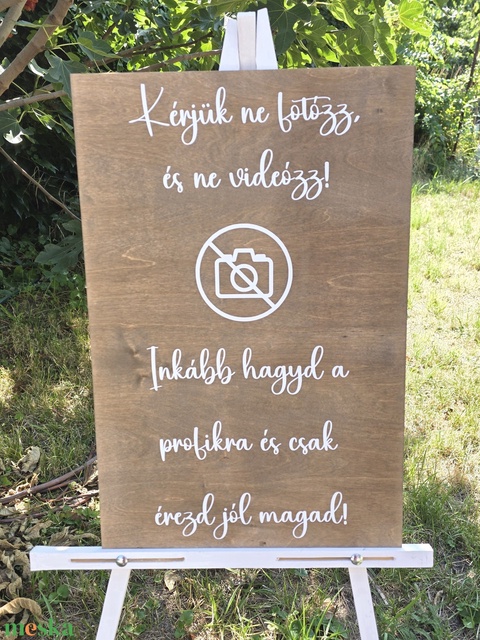 Kérjük ne fotózz,
és ne videózz!
Inkább hagyd a
profikra és csak
érezd jól magad!
meska